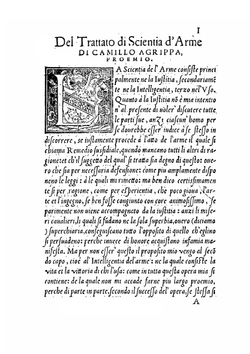 I
Del Trattato di Scientia d'Arme
DI CAMILLO AGRIPPA,
PROEMIO.
LA Scientia de l'Arme consiste princi
palmente ne la Iustitia, secondariamẽ
te ne la Intelligentia, terzo nel'Vso.
Quanto à la Iustitia nõ è mia intentio
n'al presente di voler discutere tutte
le parti sue, anzi ciascun' homo per
se dourebbe esser iudice à se stesso in
discorrere, se iustamente procede à l'atto de l'arme il quale si
chiama Remedio sussidiale, quando mancano tutti li altri di ra
gione: et ch'il suggetto del qual si tratta sia degno di questo: ouero
che sia per necessaria defensione: come piu ampiamente dispo
neno le leggi: à le quali
te si per ragione, come per esperientia, che poco gioua, l'ar-
te et l'ingegno, se ben fosse congiunto con core animosissimo, se
parimente non uiene accompagnato da la iustitia: anzi li mise
ri caualieri, li quali si fidano ne la sola superbia, ouero (diciamo
) superchiaria, conseguiscano tutto l'apposito di quello ch'essi
si persuadeno: perche inuece di honore acquistano infamia ma
nifesta. Ma per non esser questo mio proposito uengo al secõ
do capo, cioè al Intelligentia del'arme: ne la quale consiste la
vita et la vittoria di chi l'usa: come in tutta questa opera mia si
contiene: de la quale non mi accade farne piu largo proemio,
perche di parte in parte, secondo il successo del'opera, se stessa si
A